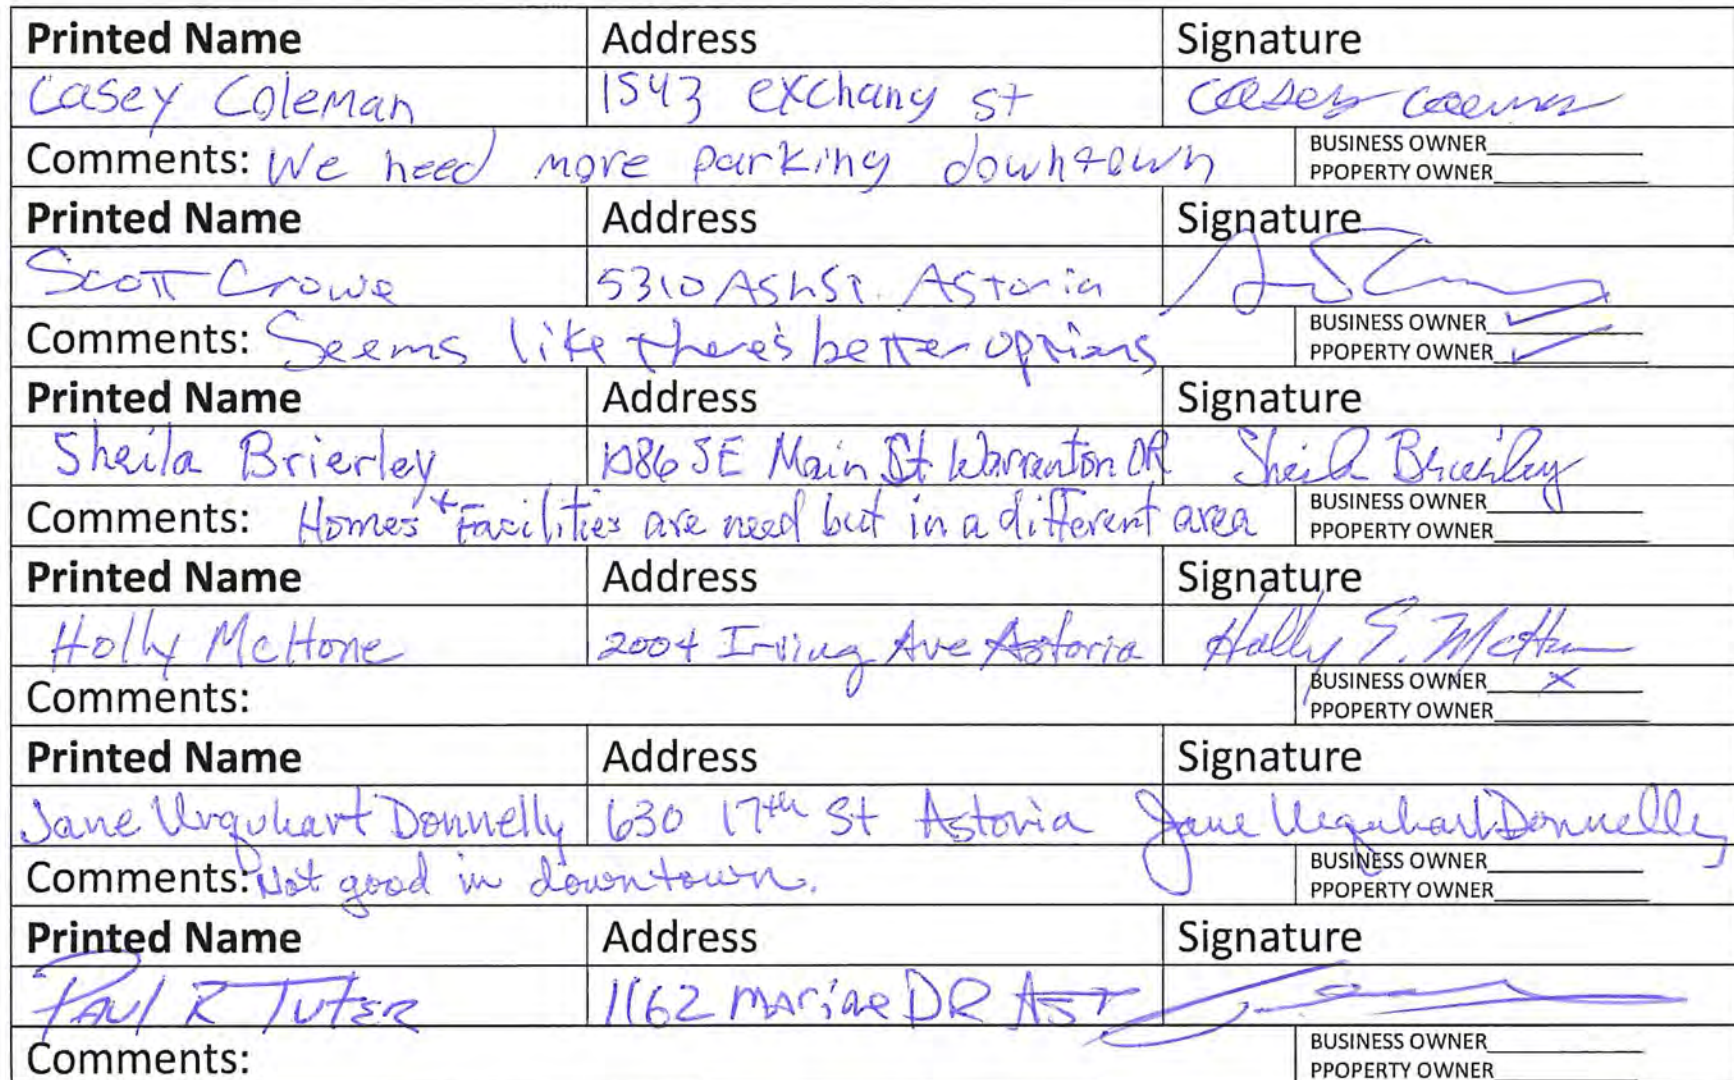 Printed Name Address Signature
Casey Coleman 1543 exchang st
Comments: We need more parking downtown BUSINESS OWNER
PPOPERTY OWNER
Printed Name Address Signature
Scott Crowe 5310 Ash St. Astoria
Comments: Seems like there's better options BUSINESS OWNER ✓
PPOPERTY OWNER ✓
Printed Name Address Signature
Sheila Brierley 1086 SE Main St Warrenton OR Sheila Brierley
Comments: Homes + Facilities are need but in a different area BUSINESS OWNER
PPOPERTY OWNER
Printed Name Address Signature
Holly McHone 2004 Irving Ave Astoria Holly E. McHone
Comments: BUSINESS OWNER X
PPOPERTY OWNER
Printed Name Address Signature
Jane Urquhart Donnelly 630 17th St Astoria Jane Urquhart Donnelly
Comments: Not good in downtown. BUSINESS OWNER
PPOPERTY OWNER
Printed Name Address Signature
Paul R Tuter 1162 Marine DR AST
Comments: BUSINESS OWNER
PPOPERTY OWNER